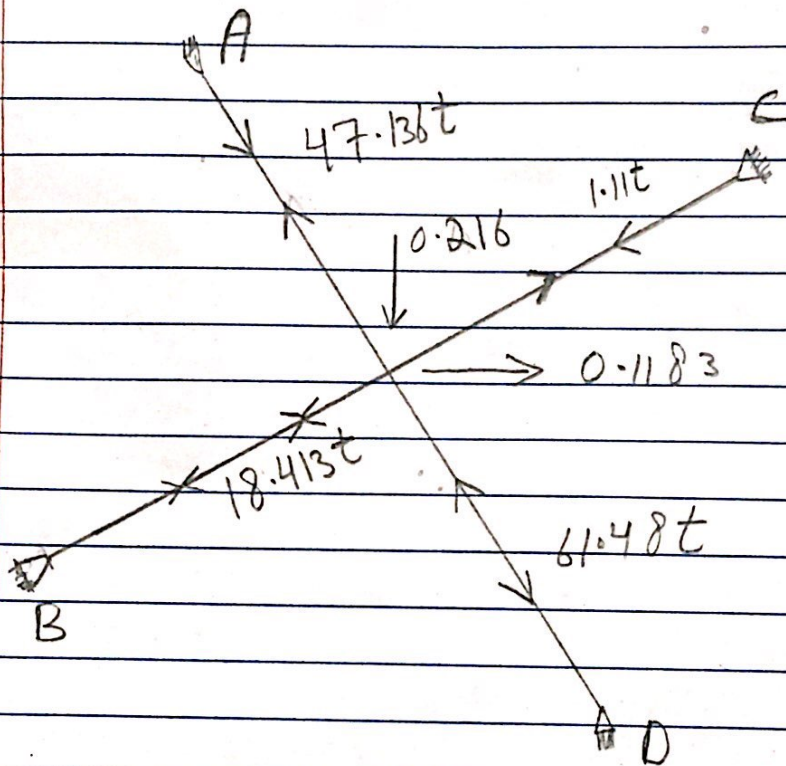 A
47.136t
C
1.11t
0.216
0.1183
18.413t
61.48t
B
D